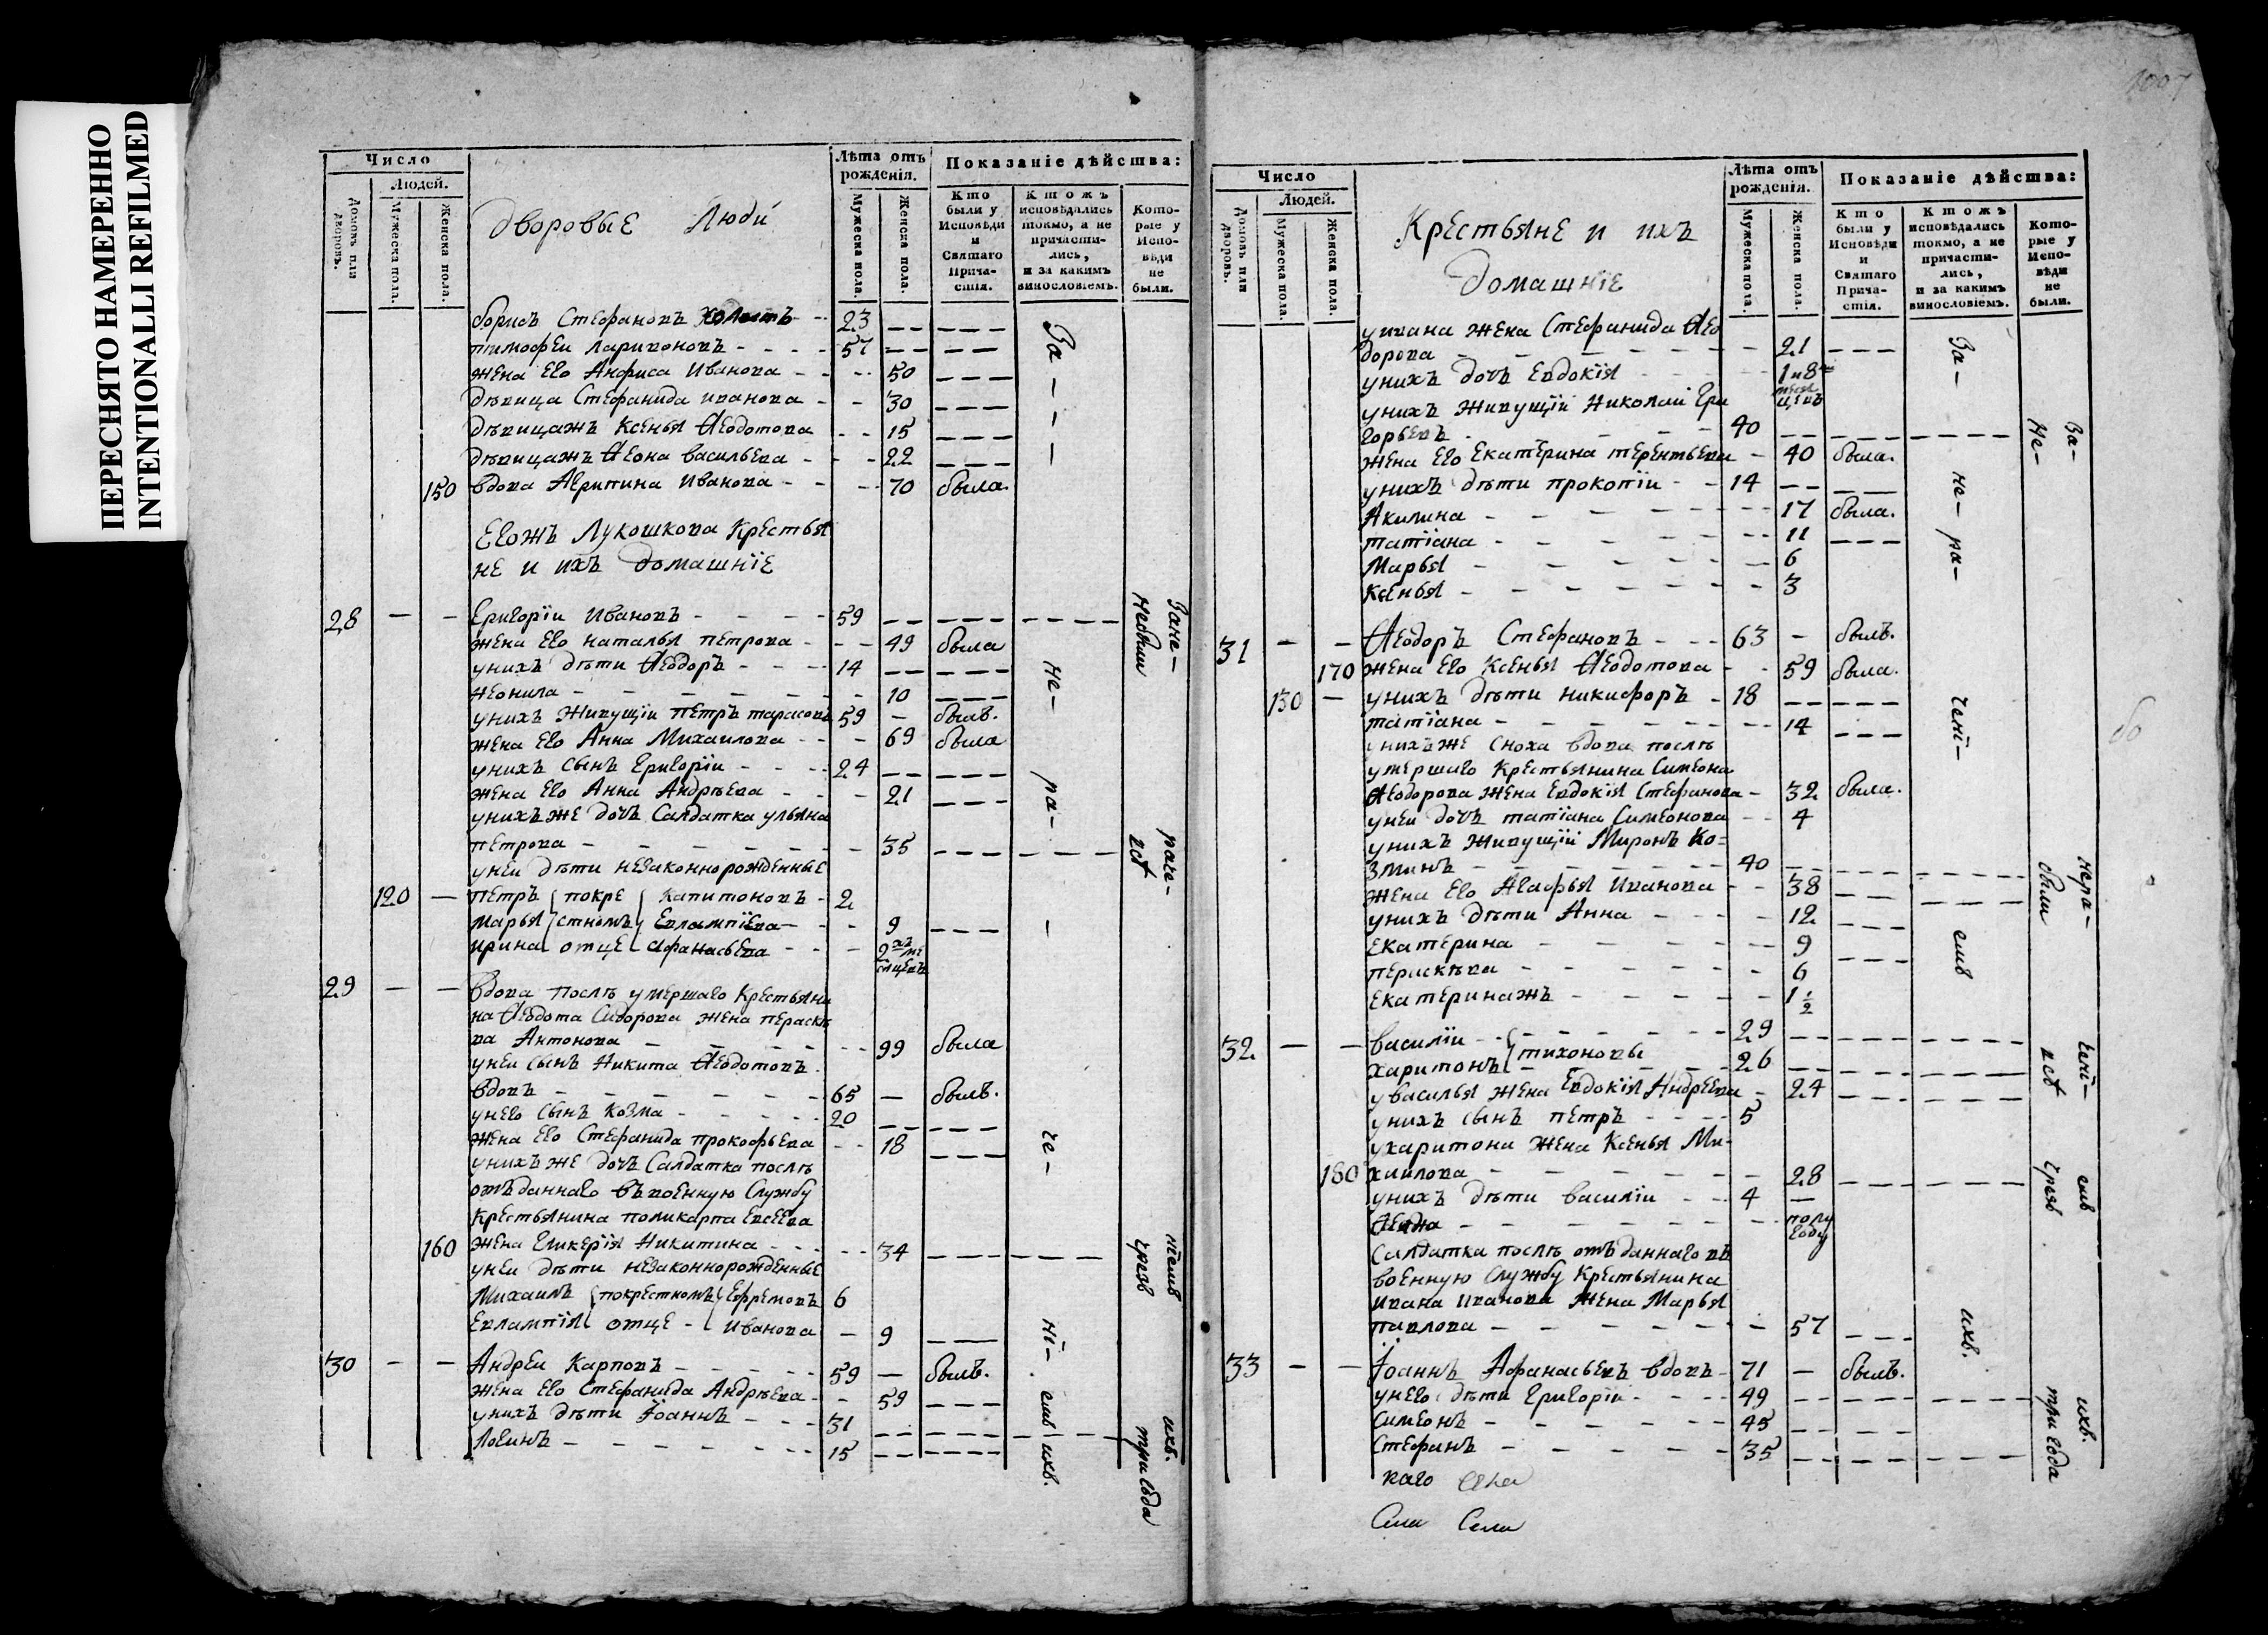 ПЕРЕСНЯТО НАМЕРЕННО
INTENTIONALLI REFILMED
Число
Людей.
Домовъ или дворовъ.
Мужеска пола.
Женска пола.
Дворовые Люди
Лѣта отъ рожденія.
Мужеска пола.
Женска пола.
Показаніе дѣйства:
Кто были у Исповѣди и Святаго Прича- стія.
Ктожъ исповѣдались токмо, а не причасти- лись, и за какимъ винословіемъ.
Кото- рые у Испо- вѣди не были.
борисъ Стефановъ холостъ - - 23 - - - - -
тимофеи Ларивоновъ - - - - 57 - - - - -
жена его Анфиса Иванова - - - 50 - - -
дѣвица Стефанида иванова - - 30 - - -
дѣвицажъ Ксенья Ѳеодотова - - 15 - - -
дѣвицажъ васильева - - - 22 - - -
150 вдова Агрипина Иванова - - - 70 была.
Егожъ Лукошкова Крестья
не и ихъ домашніе
28 - - Григоріи Ивановъ - - - - 59 - - - - - - - - -
жена его наталья петрова - - - 49 была
унихъ дѣти Ѳеодоръ - - - - 14 - - - - -
неонила - - - - - - - 10 - - -
унихъ живущіи петръ тарасовъ 59 - былъ.
жена его Анна Михаилова - - - 69 была
унихъ сынъ Григоріи - - - - 24 - - - - -
жена его Анна Андрѣева - - - 21 - - -
унихъ же дочь Салдатка ульяна
петрова - - - - - - - - 35 - - - - - - -
унеи дѣти незаконнорожденные
120 - петръ покре Капитоновъ - 2
марья стномъ Евлампіева - - - 9 - - -
ирина отце афанасьева - - - 2хъ ме
сяцевъ
29 - - вдова послѣ умершаго Крестьяни
на Ѳеодота Сидорова жена пераскѣ
ва Антонова - - - - - - 99 была
унеи сынъ Никита Ѳеодотовъ.
вдовъ - - - - - - - 65 - былъ.
унего сынъ козма - - - - - 20 - - - - -
жена его Стефанида прокофьева - - 18 - - -
унихъ же дочь Салдатка послѣ
отъданнаго въ военную Службу
Крестьянина поликарпа Евсеева
160 жена гликерія Никитина - - - - - 34 - - - - - -
унеи дѣти незаконнорожденные
Михаилъ покрестномъ Ефремовъ 6
Евлампія отце - Иванова - 9 - - -
30 - - Андреи Карповъ - - - - - 59 - былъ.
жена его Стефанида Андрѣева - - 59 - - -
унихъ дѣти Іоаннъ - - - - 31 - - - - - - - -
Логинъ - - - - - - - 15 - - - - -
За - - - -
не - ра - че - ні - емъ ихъ.
Зане - раче - ніемъ ихъ.
небыли чрезъ три года
Число
Людей.
Домовъ или дворовъ.
Мужеска пола.
Женска пола.
Крестьяне и ихъ
домашніе
Лѣта отъ рожденія.
Мужеска пола.
Женска пола.
Показаніе дѣйства:
Кто были у Исповѣди и Святаго Прича- стія.
Ктожъ исповѣдались токмо, а не причасти- лись, и за какимъ винословіемъ.
Кото- рые у Испо- вѣди не были.
жена Стефанида Ѳео
дорова - - - - - - - 21 - - -
унихъ дочь Евдокія - - - - 1 и 8
меся
цевъ
унихъ живущіи Николаи Гри
горьевъ - - - - - 40 - - - - - - - -
жена его Екатерина терентьева - 40 была.
унихъ дѣти прокопіи - - 14 - - - - -
Акилина - - - - - - - 17 была.
татіана - - - - - - - 11 - - -
Марья - - - - - - - 6
Ксенья - - - - - - - 3
31 - - Ѳеодоръ Стефановъ - - - 63 - былъ.
170 жена его Ксенья Ѳеодотова - - 59 была.
130 - унихъ дѣти никифоръ - 18 - - - - -
татіана - - - - - - - 14 - - -
унихъже сноха вдова послѣ
умершаго Крестьянина Симеона
Ѳеодорова жена Евдокія Стефанова - 32 была.
унеи дочь татіана Симеонова - - 4
унихъ живущіи Миронъ Ко-
зминъ - - - - - - 40 - - - - - - - -
жена его Агафья Иванова - - 38 - - - - - -
унихъ дѣти Анна - - - - 12 - - -
Екатерина - - - - - - 9 - - -
пераскѣва - - - - - - 6
Екатеринажъ - - - - - - 1 1/2
32 - - василіи - - - - - - 29 - - - - - - - -
харитонъ тихоновы - - - - 26 - - - - - - - -
увасилья жена Евдокія Андреева - 24 - - - - - -
унихъ сынъ петръ - - - - 5
ухаритона жена Ксенья Ми-
180 хаилова - - - - - - - 28 - - - - - -
унихъ дѣти василіи - - - 4 -
- - - - - - - полу
году
Салдатка послѣ отъданнаго въ
военную Службу Крестьянина
ивана иванова жена Марья
павлова - - - - - - - 57 - - -
33 - - Іоаннъ Афанасьевъ вдовъ - 71 - былъ.
унего дѣти Григоріи - - - - 49 - - - - - - - -
Симеонъ - - - - - - 45 - - - - -
Стефанъ - - - - - - 35 - - - - - - - -
За - не - ра - чені - емъ ихъ.
За - нера - чені - емъ ихъ.
Не - были чрезъ три года